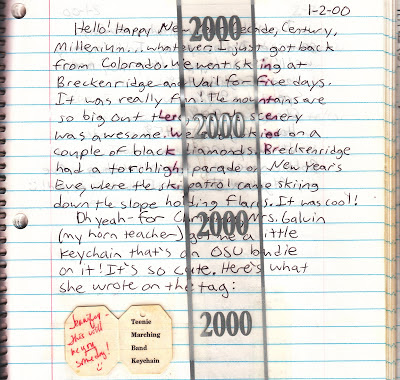 1-2-00
Hello! Happy New Decade, Century,
Millenium... whatever - I just got back
from Colorado. We went skiing at
Breckenridge and Vail for five days.
It was really fun! The mountains are
so big out there, scenery
was awesome. We on a
couple of black diamonds. Breckenridge
had a torchlight parade on New Year's
Eve, were the ski patrol came skiing
down the slope holding flares. It was cool!
Oh yeah - for Christmas, Mrs. Galvin
(my horn teacher) got me a little
keychain that's an OSU bandie
on it! It's so cute. Here's what
she wrote on the tag:
2000
2000
2000
2000
Jennifer -
This will
be you
someday!
Teenie
Marching
Band
Keychain